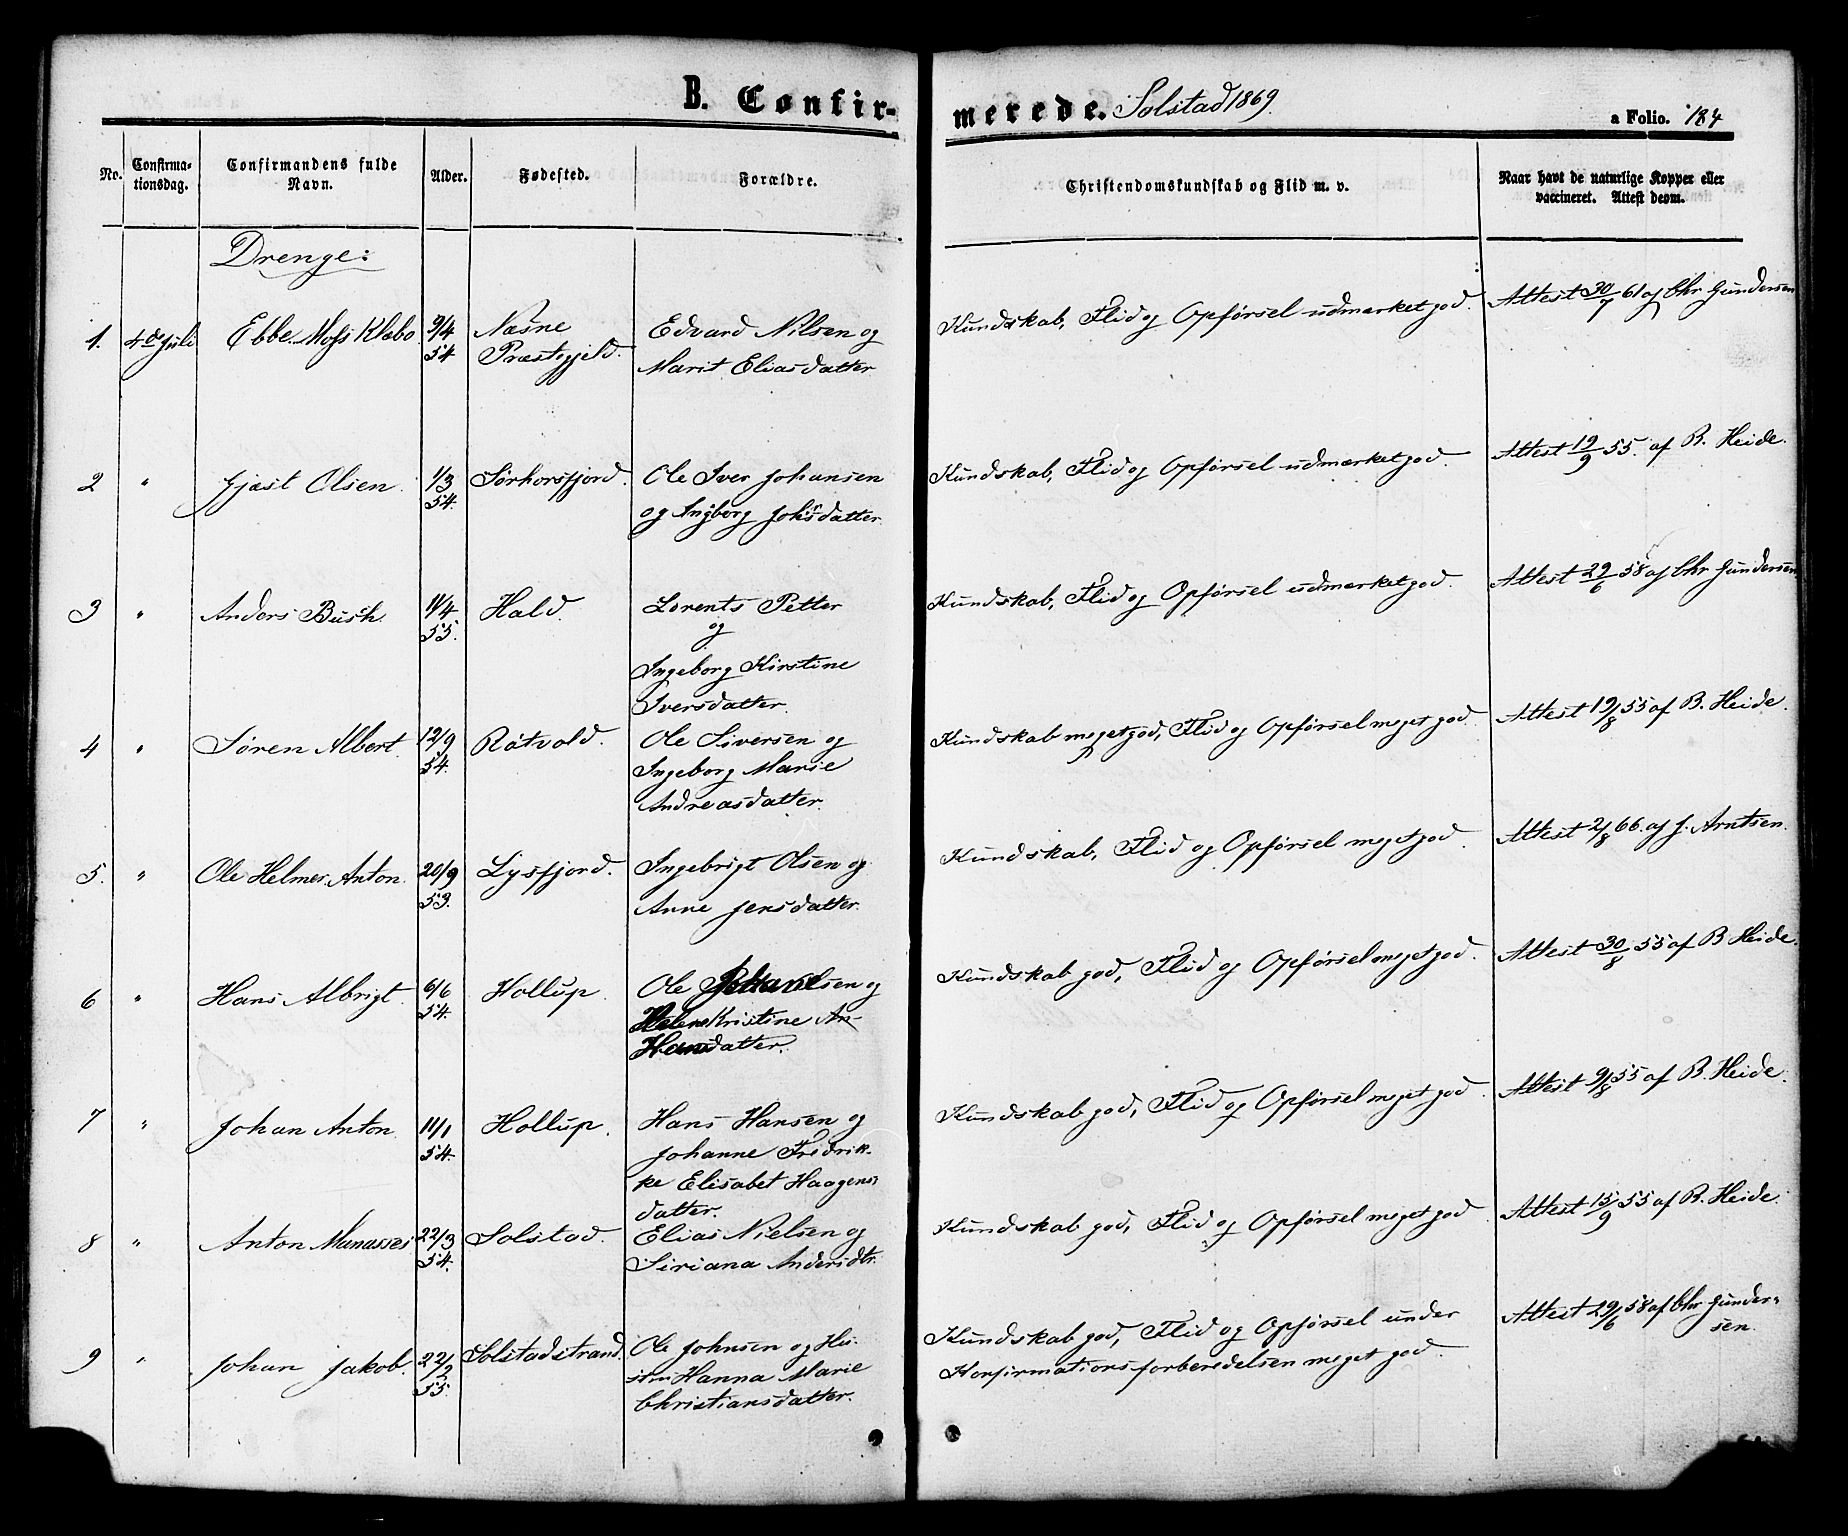 B. Confir-
merede. Solstad 1869.
a Folio. 184
No.
Confirma-
tionsdag.
Confirmandens fulde
Navn.
Alder.
Fødested.
Forældre.
Christendomskundskab og Flid m. v.
Naar havt de naturlige Kopper eller
vaccineret. Attest derom.
Drenge:
1. 4de Juli Ebbe Moss Klæbo 9/4 54 Næsne Præstegjeld. Edvard Nilsen og
Marit Eliasdatter
Kundskab, Flid og Opførsel udmærket god. Attest 30/7 61 af Chr Gundersen
2 " Gjæst Olsen. 1/3 54. Sørhorsfjord. Ole Iver Johansen
og Ingborg Johsdatter.
Kundskab, Flid og Opførsel udmærket god. Attest 19/9 55. af B. Heide.
3 " Anders Busk 11/4 55. Hald. Lorents Petter
og
Ingeborg Kirstine
Iversdatter.
Kundskab, Flid og Opførsel udmærket god. Attest 29/6 58 af Chr Gundersen
4 " Søren Albert. 12/9 54. Råtvold. Ole Siversen og
Ingeborg Marie
Andreasdatter.
Kundskab meget god, Flid og Opførsel meget god. Attest 19/8 55 af B. Heide.
5. " Ole Helmer Anton. 20/9 53. Lysfjord. Ingebrigt Olsen og
Anne Jensdatter.
Kundskab, Flid og Opførsel meget god. Attest 2/8 66. af J. Arntsen.
6 " Hans Albrigt. 6/6 54. Hollup. Ole Olsen og
Kristine An-
Hansdatter.
Kundskab god, Flid og Opførsel meget god. Attest 30/8 55 af B Heide.
7 " Johan Anton. 11/1 54. Hollup. Hans Hansen og
Johanne Fredrik-
ke Elisabet Haagens-
datter.
Kundskab god, Flid og Opførsel meget god. Attest 9/8 55 af B. Heide.
8 " Anton Manasses 22/3 54. Solstad. Elias Nielsen og
Siriana Andersdtr.
Kundskab god, Flid og Opførsel meget god. Attest 15/9 55 af B. Heide
9 " Johan Jakob. 22/2 55. Solstadstrand. Ole Johnsen og Hu-
stru Hanna Marie
Christiansdatter.
Kundskab god, Flid og Opførsel under
Konfirmationsforberedelsen meget god. Attest 29/6 58 af Chr Gunder-
sen.